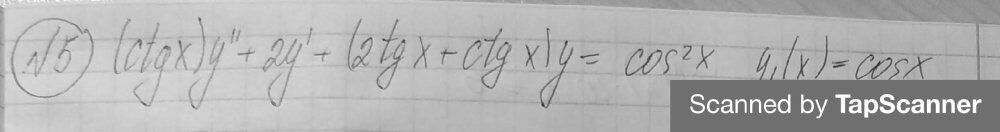 №5) (ctgx)y'' + 2y' + (2tgx + ctgx)y = cos²x y₁(x) = cosx
Scanned by TapScanner